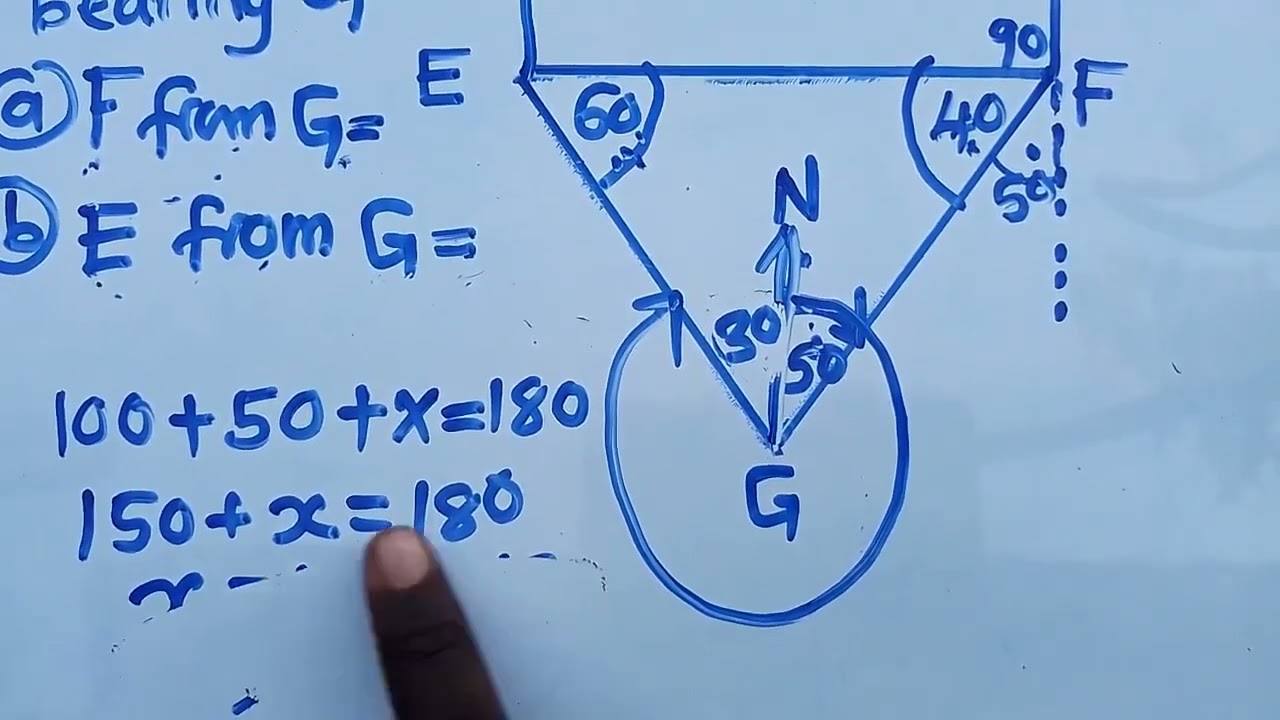 bearing of
(a) F from G=
(b) E from G=
100+50+x=180
150+x=180
x =
E
60
90
F
40
50
N
30
50
G